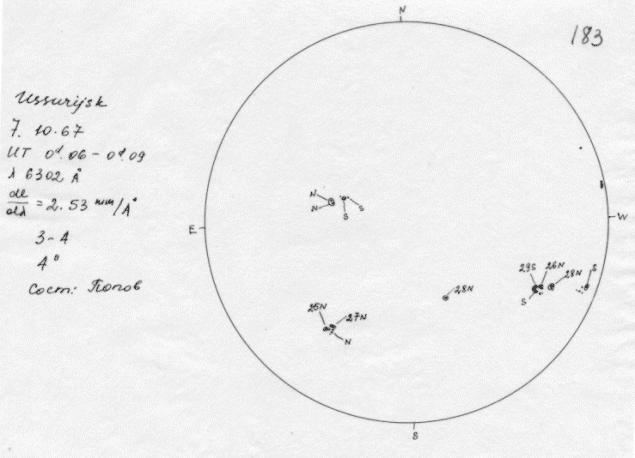 183
Ussurijsk
7. 10. 67
UT 0ᵈ.06 - 0ᵈ.09
λ 6302 Å
dl/dλ = 2.53 mm/Å
3-4
4"
Сост: Попов
N
E
W
S
N
N
S
S
29S
26N
28N
S
S
28N
25N
27N
N